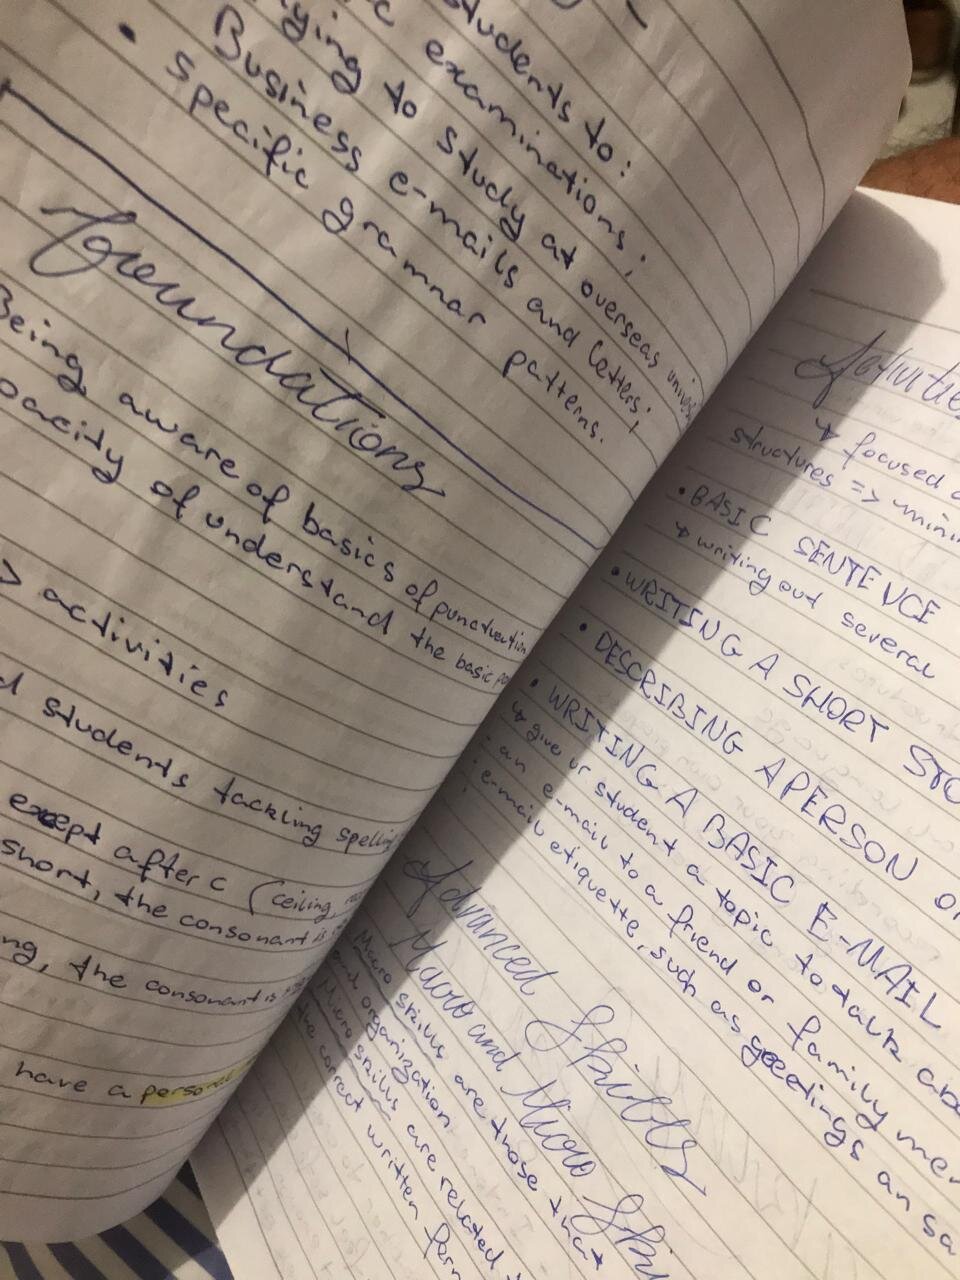 students to:
examinations;
ying to study at overseas
Business e-mails and letters;
• specific gramnar patterns.
Foundations
Being aware of basics of punctuation
pacity of understand the basic
> activities
d students tackling spelling
except after c (ceiling,
short, the consonant is
ng, the consonant is
have a personal
↳ focused
structures =>
• BASIC SENTENCE
↳ writing out several
• WRITING A SHORT STO
• DESCRIBING A PERSON O
• WRITING A BASIC E-MAIL
↳ give ur student a topic to talk abo
an e-mail to a friend or family mem
e-mail etiquette, such as geetings an sa
Advanced Skills
Macro and Micro Ski
Macro skills are those that
and organization
Micro skills are related t
the correct written form